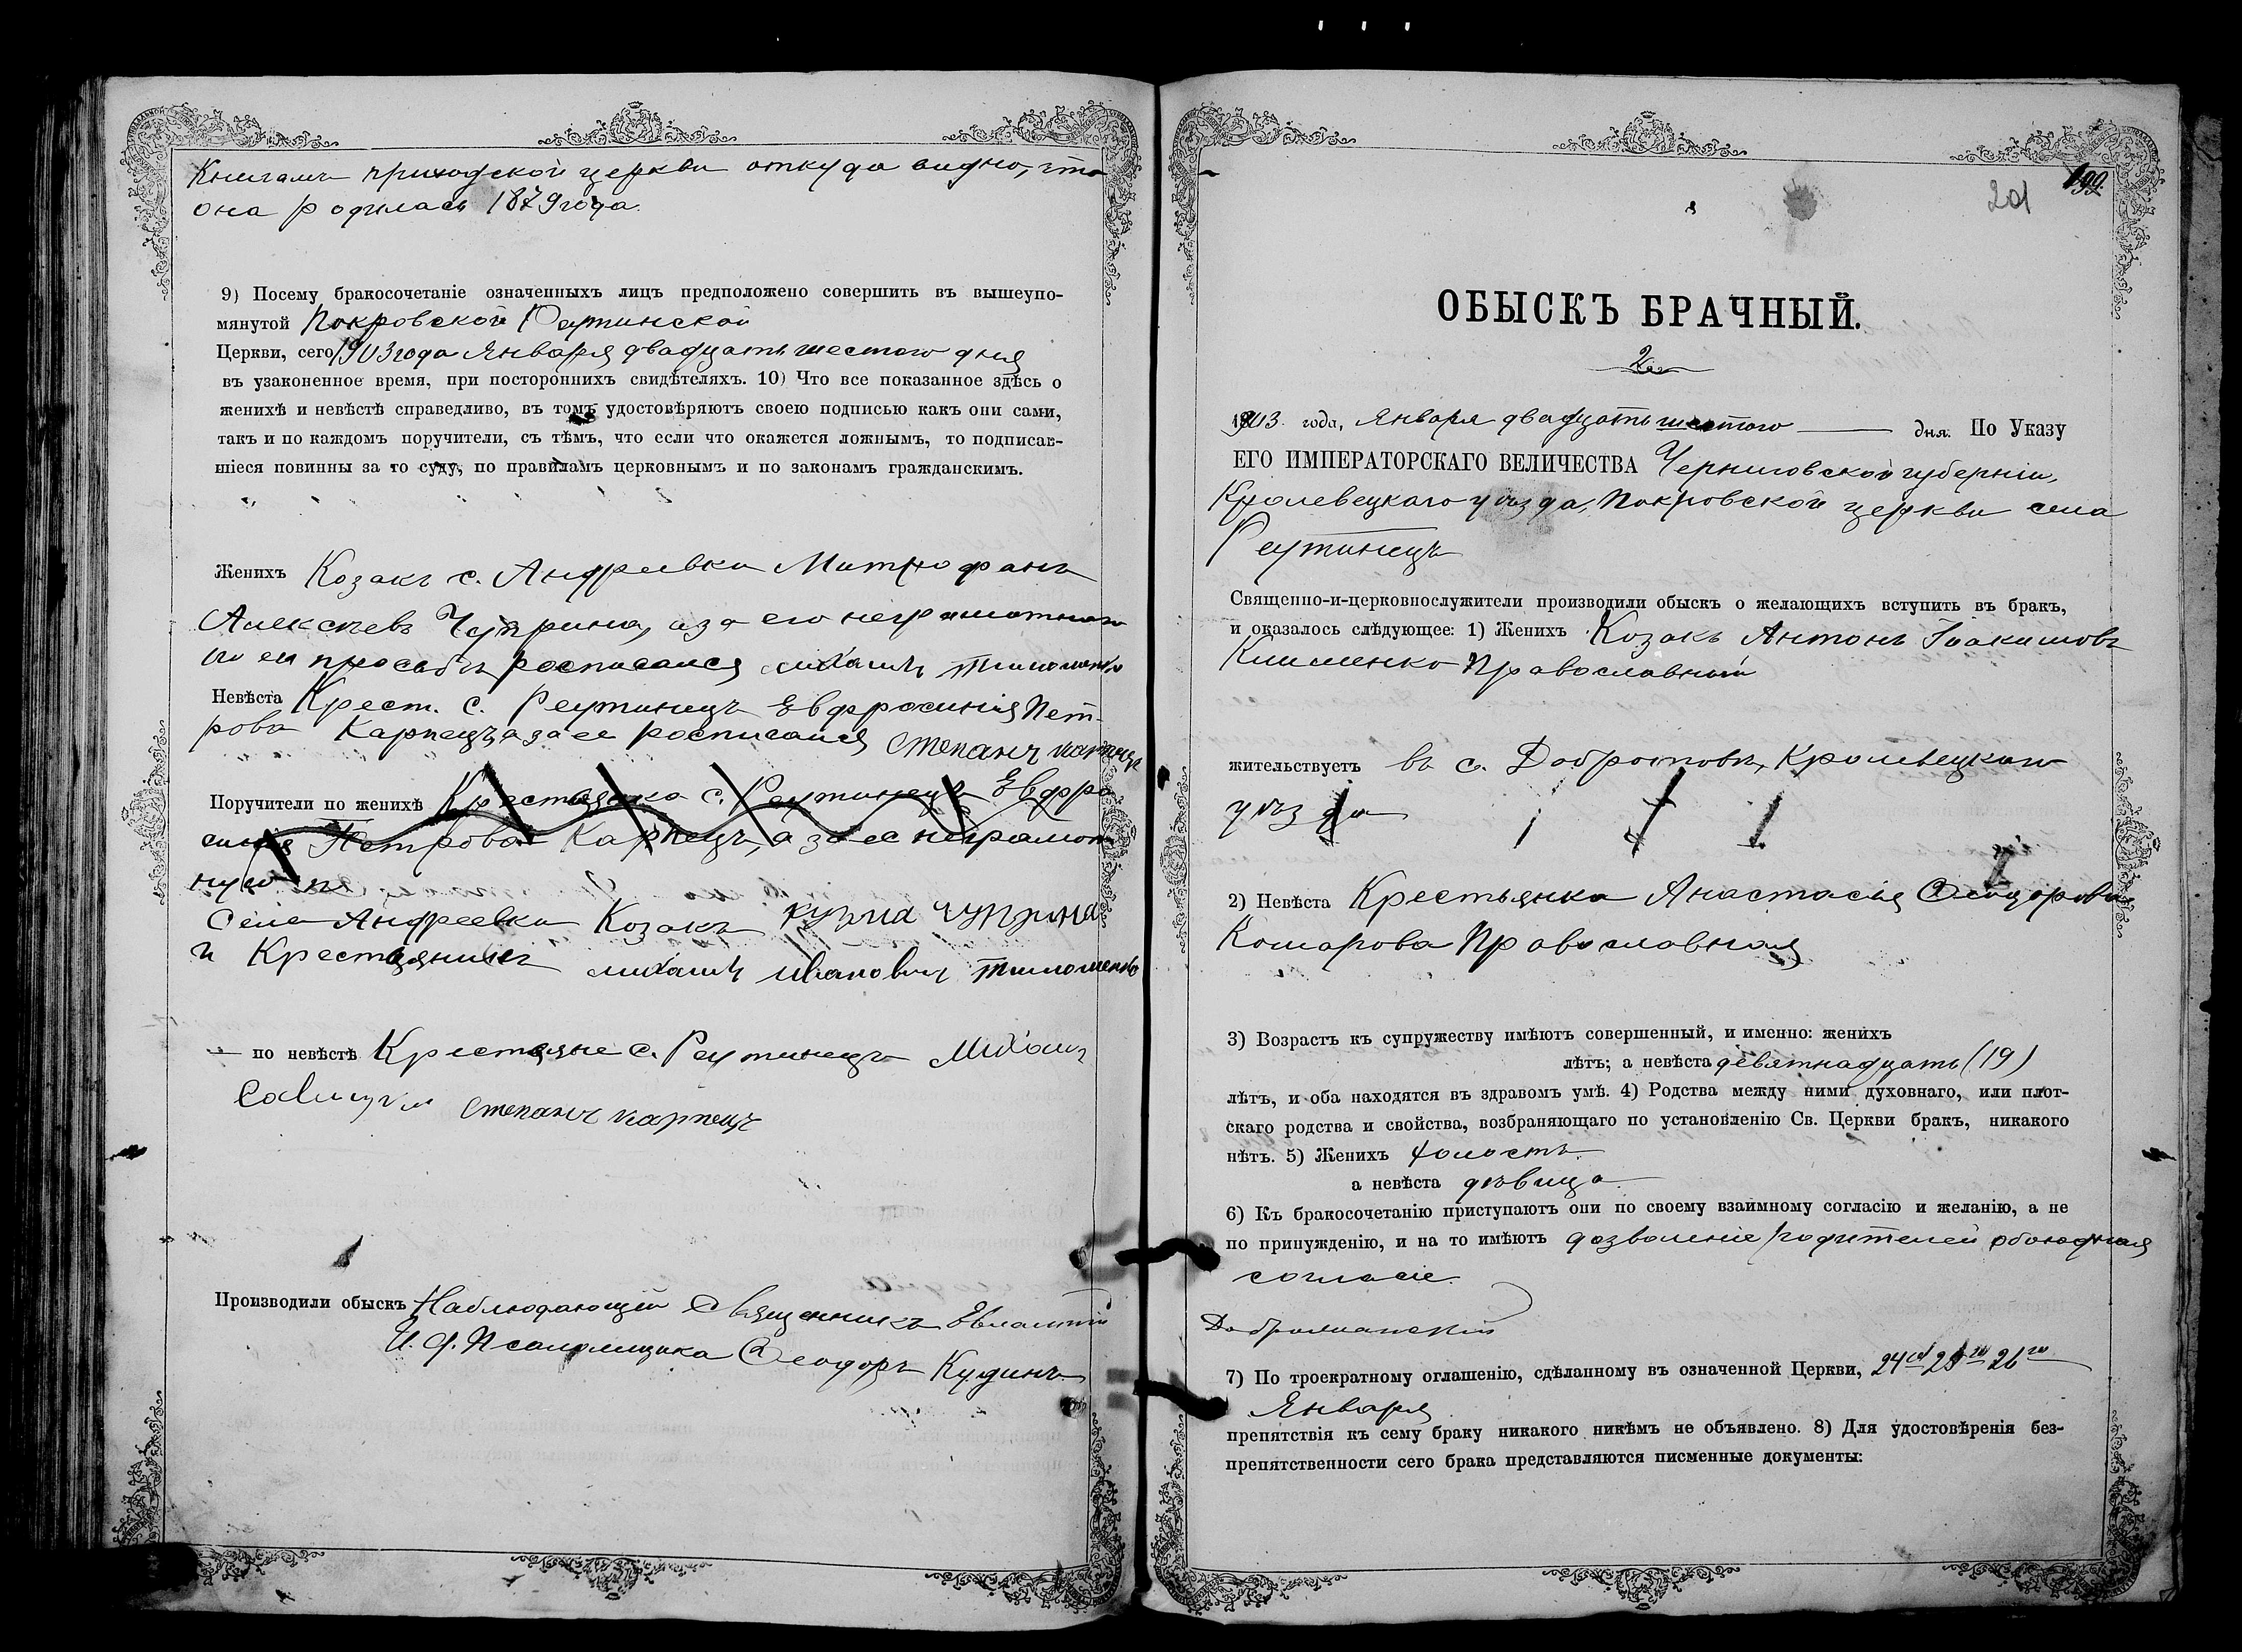 Книгамъ приходской церкви откуда видно, что
она родилась 1879 года.
9) Посему бракосочетаніе означенныхъ лицъ предположено совершить въ вышеупо-
мянутой Покровской Реутинской
Церкви, сего 1903 года Января двадцать шестого дня
въ узаконенное время, при постороннихъ свидѣтеляхъ. 10) Что все показанное здѣсь о
женихѣ и невѣстѣ справедливо, въ томъ удостовѣряютъ своею подписью какъ они сами,
такъ и по каждомъ поручители, съ тѣмъ, что если что окажется ложнымъ, то подписав-
шіеся повинны за то суду, по правиламъ церковнымъ и по законамъ гражданскимъ.
Женихъ Козакъ с. Андреевки Митрофанъ
Алексѣевъ Чуприна, а за его неграмотнаго
по его просьбѣ росписался михаилъ тимошенко
Невѣста Крест. с. Реутинецъ Евфросинія Пет-
рова Карпецъ, а за ее росписался степанъ карпецъ
Поручители по женихѣ Крестьянка с. Реутинецъ Евфро
синія Петрова Карпецъ, а за ее неграмот
ную по
Села Андреевки Козакъ кузма чуприна
и Крестьянинъ михаилъ ивановичъ тимошенко
— по невѣстѣ Крестьяне с. Реутинецъ Михаилъ
Савицкій степанъ карпецъ
Производили обыскъ Наблюдающій Священникъ Евлампій
И. д. Псаломщика Ѳеодоръ Кудинъ
201 199.
ОБЫСКЪ БРАЧНЫЙ.
2.
1903. года, Января двадцать шестого дня. По Указу
ЕГО ИМПЕРАТОРСКАГО ВЕЛИЧЕСТВА Черниговской губерніи,
Кролевецкаго уѣзда, Покровской церкви села
Реутинецъ
Священно-и-церковнослужители производили обыскъ о желающихъ вступить въ бракъ,
и оказалось слѣдующее: 1) Женихъ Козакъ Антонъ Іоакимовъ
Клименко Православный
жительствуетъ въ с. Добротовѣ, Кролевецкаго
уѣзда
2) Невѣста Крестьянка Анастасія Ѳеодорова
Комарова Православная
3) Возрастъ къ супружеству имѣютъ совершенный, и именно: женихъ
лѣтъ; а невѣста девятнадцать (19)
лѣтъ, и оба находятся въ здравомъ умѣ. 4) Родства между ними духовнаго, или плот-
скаго родства и свойства, возбраняющаго по установленію Св. Церкви бракъ, никакого
нѣтъ. 5) Женихъ холостъ.
а невѣста дѣвица
6) Къ бракосочетанію приступаютъ они по своему взаимному согласію и желанію, а не
по принужденію, и на то имѣютъ дозволеніе родителей обоюдная
согласіе.
Добрянскій
7) По троекратному оглашенію, сдѣланному въ означенной Церкви, 24го 25го 26го
Января
препятствія къ сему браку никакого никѣмъ не объявлено. 8) Для удостовѣренія без-
препятственности сего брака представляются писменные документы: